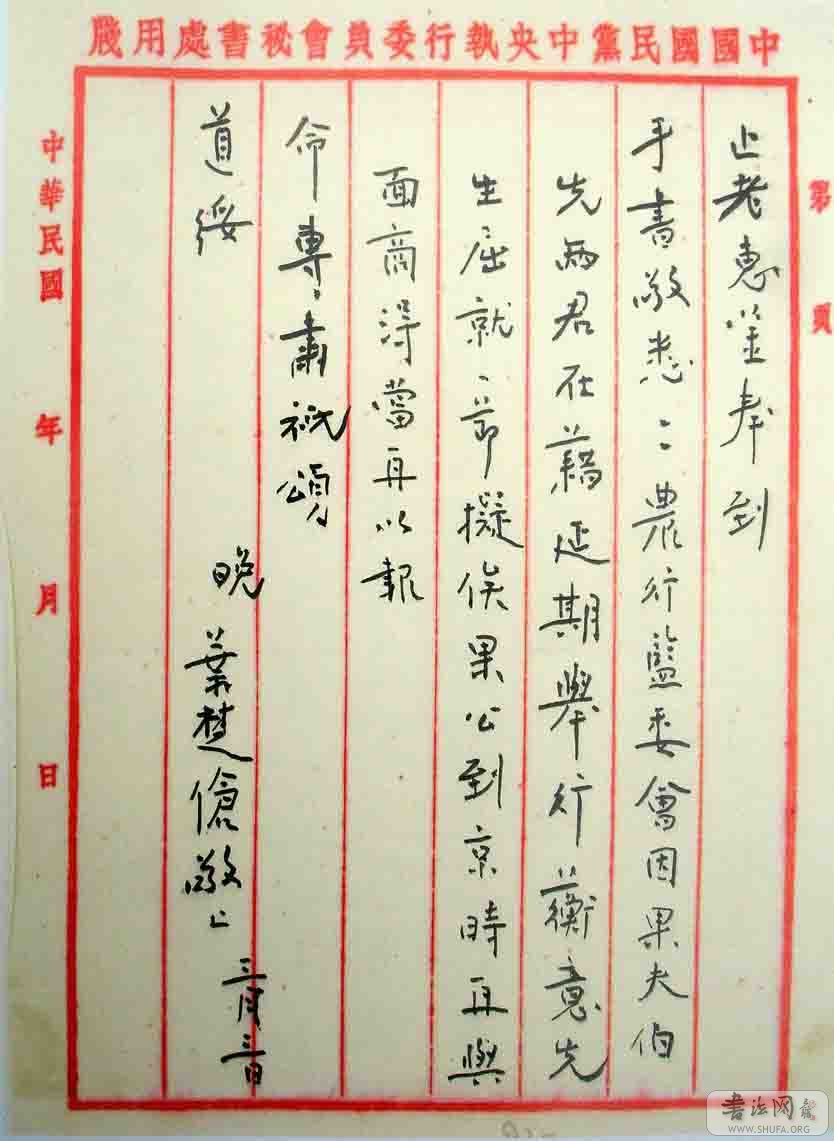 中國國民黨中央執行委員會秘書處用牋
第 頁
止老惠鑒奉到
手書敬悉二農行監委會因果夫伯
先兩君在藉延期舉行蘅意先
生屈就一節擬俟果公到京時再與
面商淂當再以報
命專肅祇頌
道綏
晚 葉楚傖敬上 三月三日
中華民國 年 月 日
書法网
WWW.SHUFA.ORG